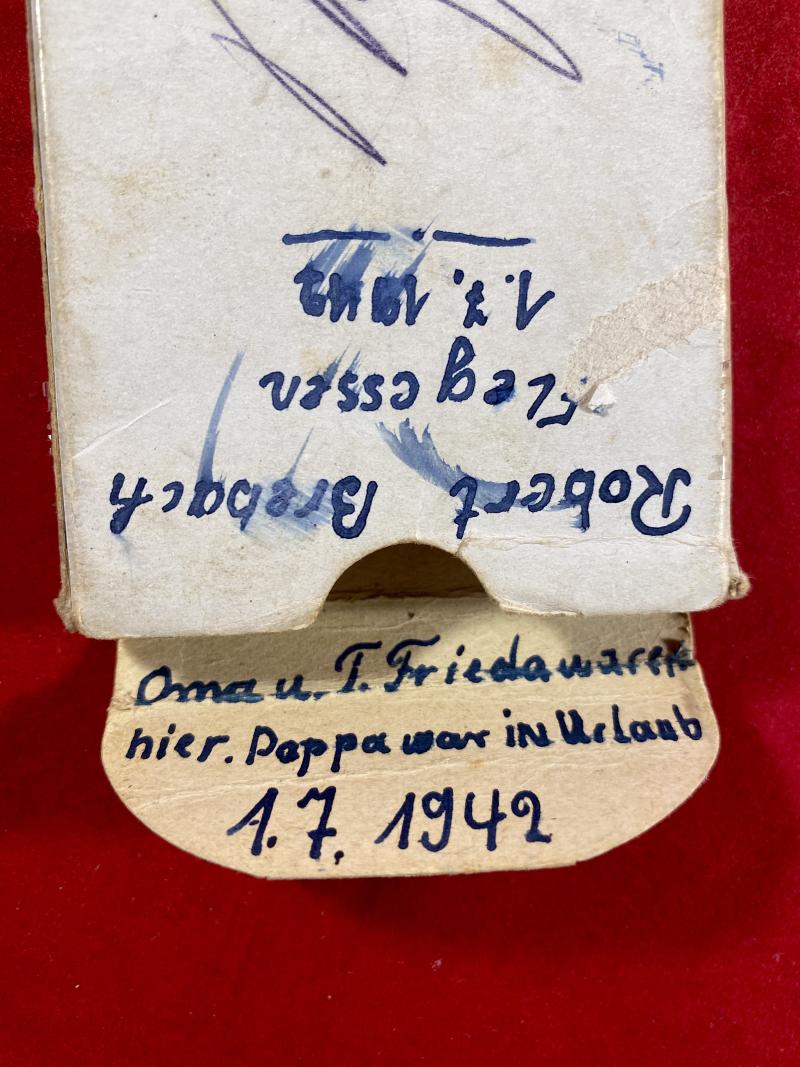 Robert Brebach
Flegessen
1.7.1942
Oma u. T. Frieda waren
hier. Pappa war in Urlaub
1.7.1942